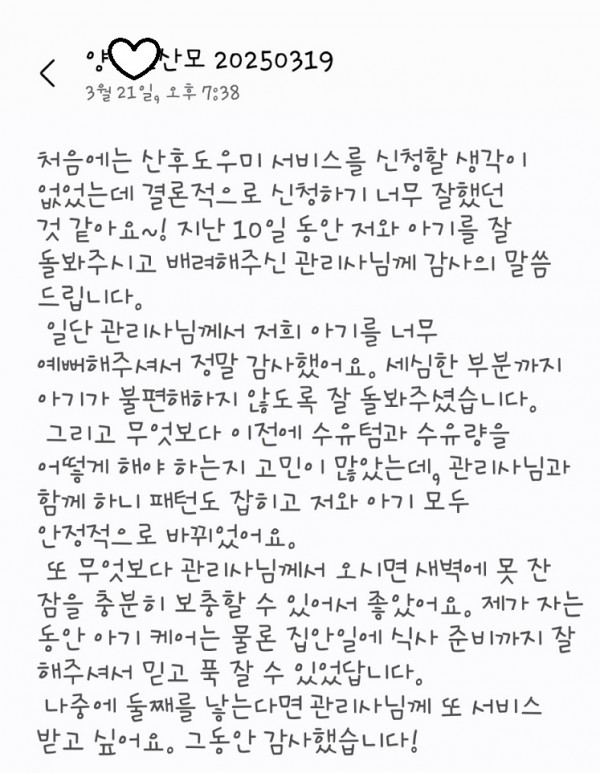 양 산모 20250319
3월 21일, 오후 7:38
처음에는 산후도우미 서비스를 신청할 생각이
없었는데 결론적으로 신청하기 너무 잘했던
것 같아요~! 지난 10일 동안 저와 아기를 잘
돌봐주시고 배려해주신 관리사님께 감사의 말씀
드립니다.
일단 관리사님께서 저희 아기를 너무
예뻐해주셔서 정말 감사했어요. 세심한 부분까지
아기가 불편해하지 않도록 잘 돌봐주셨습니다.
그리고 무엇보다 이전에 수유텀과 수유량을
어떻게 해야 하는지 고민이 많았는데, 관리사님과
함께 하니 패턴도 잡히고 저와 아기 모두
안정적으로 바뀌었어요.
또 무엇보다 관리사님께서 오시면 새벽에 못 잔
잠을 충분히 보충할 수 있어서 좋았어요. 제가 자는
동안 아기 케어는 물론 집안일에 식사 준비까지 잘
해주셔서 믿고 푹 잘 수 있었답니다.
나중에 둘째를 낳는다면 관리사님께 또 서비스
받고 싶어요. 그동안 감사했습니다!